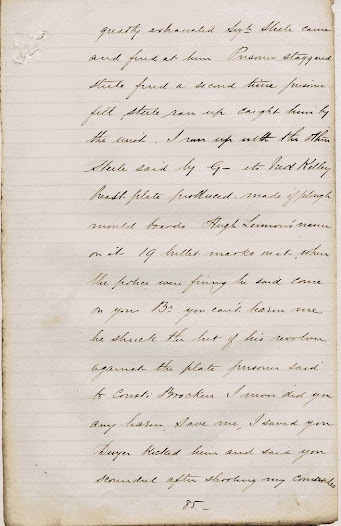 greatly exhausted Sgt. Steele came
and fired at him Prisoner staggered
steele fired a second time prisoner
fell, steele ran up caught him by
the wrist. I ran up with the others
Steele said by G— its Ned Kelly
breast plate produced. made of plough
mould boards Hugh Lennon's name
on it 19 bullet marks on it, when
the police were firing he said come
on you Bs you can't harm me
he struck the but of his revolver
against the plate prisoner said
to Const. Bracken I never did you
any harm, save me, I saved you
Dwyer kicked him and said you
scoundrel after shooting my comrades
85—